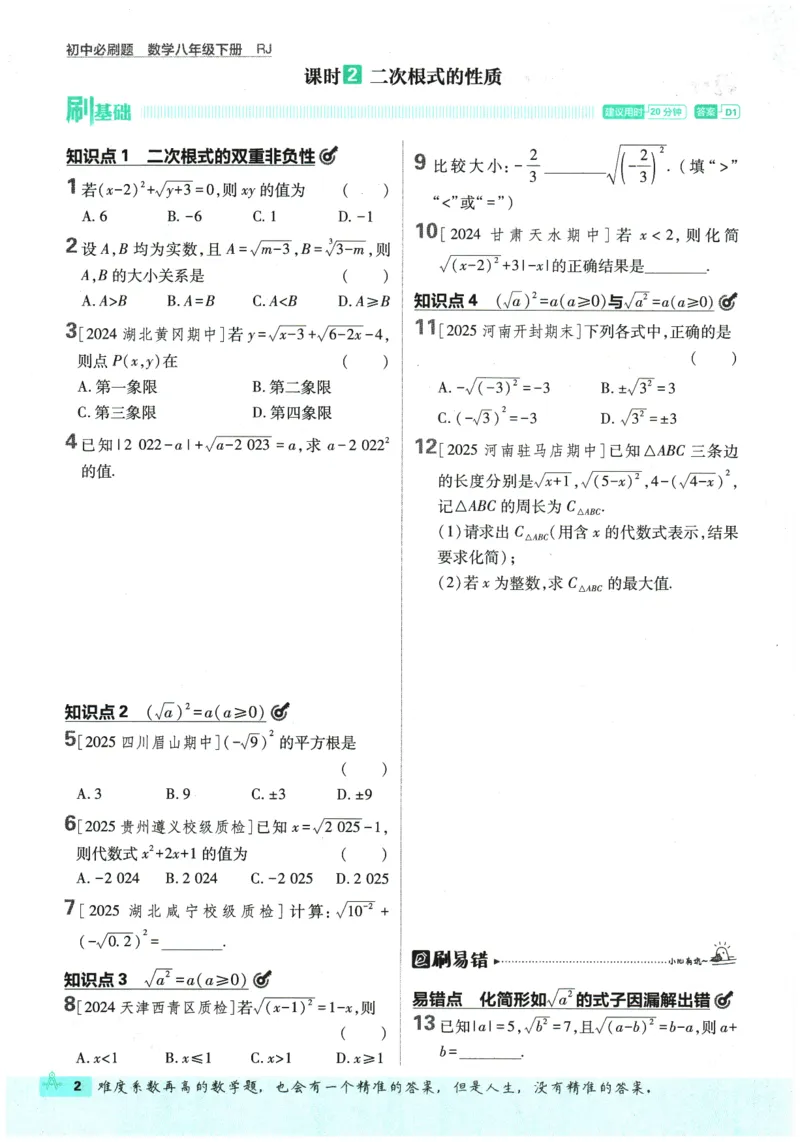 初中必刷题 数学八年级下册 RJ
课时2 二次根式的性质
刷基础
建议用时 20分钟 答案 D1
知识点1 二次根式的双重非负性
1 若(x-2)²+√(y+3)=0,则xy的值为 ( )
A.6 B.-6 C.1 D.-1
2 设A,B均为实数,且A=√(m-3),B=∛(3-m),则
A,B的大小关系是 ( )
A.A>B B.A=B C.A<B D.A≥B
3 [2024湖北黄冈期中]若y=√(x-3)+√(6-2x)-4,
则点P(x,y)在 ( )
A.第一象限 B.第二象限
C.第三象限 D.第四象限
4 已知|2 022-a|+√(a-2 023)=a,求a-2 022²
的值.
知识点2 (√a)²=a(a≥0)
5 [2025四川眉山期中](-√9)²的平方根是
( )
A.3 B.9 C.±3 D.±9
6 [2025贵州遵义校级质检]已知x=√(2 025)-1,
则代数式x²+2x+1的值为 ( )
A.-2 024 B.2 024 C.-2 025 D.2 025
7 [2025 湖北咸宁校级质检]计算:√(10⁻²)+
(-√0.2)²=______.
知识点3 √(a²)=a(a≥0)
8 [2024天津西青区质检]若√((x-1)²)=1-x,则
( )
A.x<1 B.x≤1 C.x>1 D.x≥1
9 比较大小:-2/3______√((-2/3)²).(填“>”
“<”或“=”)
10 [2024 甘肃天水期中]若x<2,则化简
√((x-2)²)+3|-x|的正确结果是______.
知识点4 (√a)²=a(a≥0)与√(a²)=a(a≥0)
11 [2025河南开封期末]下列各式中,正确的是
( )
A.-√((-3)²)=-3 B.±√(3²)=3
C.(-√3)²=-3 D.√(3²)=±3
12 [2025河南驻马店期中]已知△ABC三条边
的长度分别是√(x+1),√((5-x)²),4-(√(4-x))²,
记△ABC的周长为C△ABC.
(1)请求出C△ABC(用含x的代数式表示,结果
要求化简);
(2)若x为整数,求C△ABC的最大值.
刷易错
小心有坑~
易错点 化简形如√(a²)的式子因漏解出错
13 已知|a|=5,√(b²)=7,且√((a-b)²)=b-a,则a+
b=______.
2 难度系数再高的数学题,也会有一个精准的答案,但是人生,没有精准的答案.